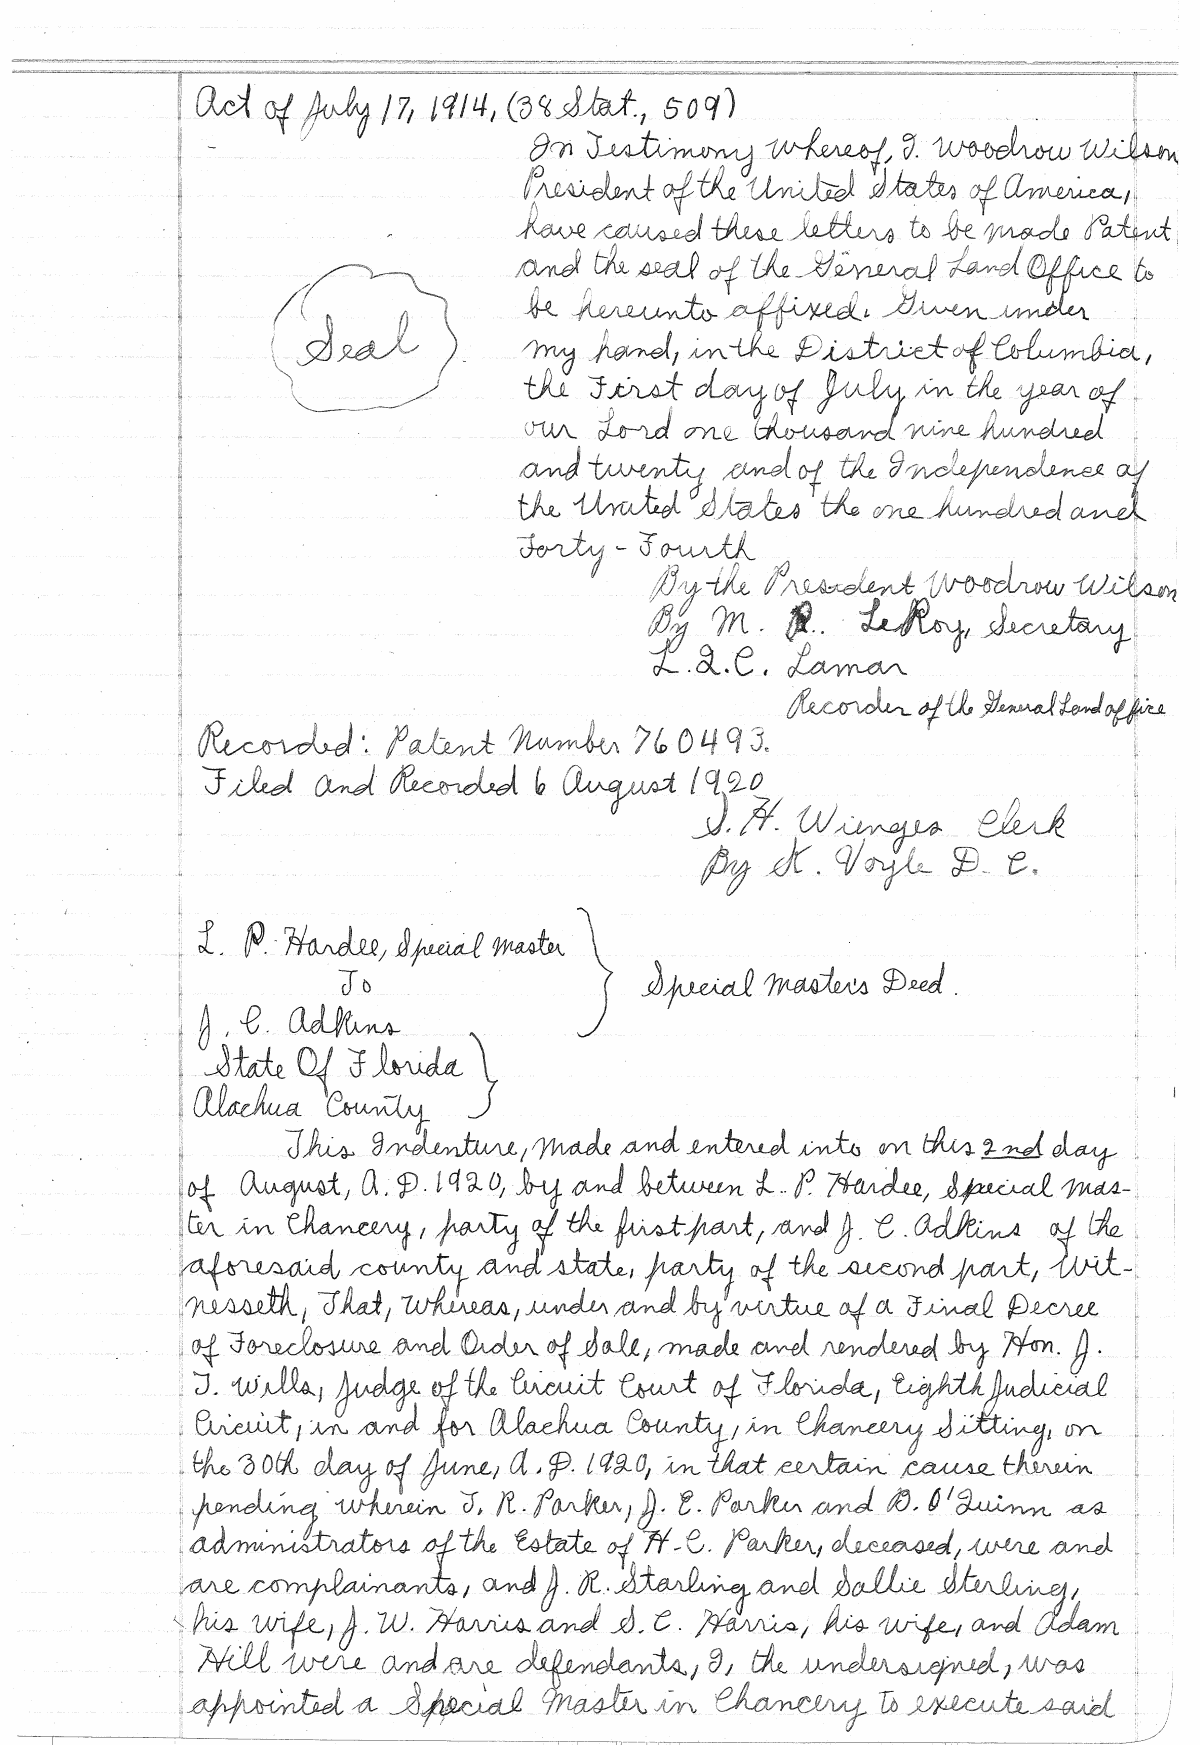 Act of July 17, 1914, (38 Stat., 509)
In Testimony whereof, I. Woodrow Wilson
President of the United States of America,
have caused these letters to be made Patent
and the seal of the General Land Office to
be hereunto affixed. Given under
Seal
my hand, in the District of Columbia,
the First day of July in the year of
our Lord one thousand nine hundred
and twenty and of the Independence of
the United States the one hundred and
Forty-Fourth
By the President Woodrow Wilson
By M. P. LeRoy, Secretary
L.Q.C. Lamar
Recorder of the General Land office
Recorded: Patent Number 760493.
Filed and Recorded 6 August 1920
S. H. Wienges Clerk
By K. Voyle D. C.
L. P. Hardee, Special Master
To
Special Master's Deed.
J. C. Adkins
State Of Florida
Alachua County
This Indenture, made and entered into on this 2nd day
of August, A.D. 1920, by and between L. P. Hardee, Special Mas-
ter in Chancery, party of the first part, and J. C. Adkins of the
aforesaid county and state, party of the second part, Wit-
nesseth, That, Whereas, under and by virtue of a Final Decree
of Foreclosure and Order of Sale, made and rendered by Hon. J.
T. Wills, Judge of the Circuit Court of Florida, Eighth Judicial
Circuit, in and for Alachua County, in Chancery Sitting, on
the 30th day of June, A.D. 1920, in that certain cause therein
pending wherein T. R. Parker, J. E. Parker and B. O'Quinn as
administrators of the Estate of H.C. Parker, deceased, were and
are complainants, and J. R. Starling and Sallie Sterling,
his wife, J. W. Harris and S. C. Harris, his wife, and Adam
Hill were and are defendants, I, the undersigned, was
appointed a Special Master in Chancery to execute said